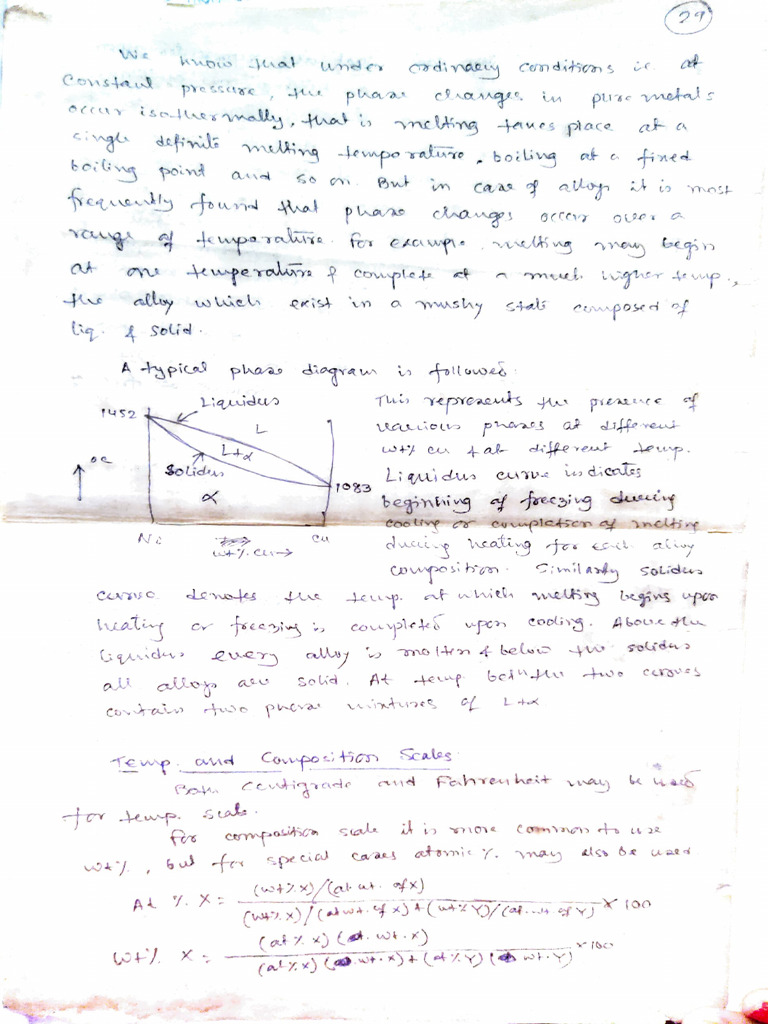 29
We know that under ordinary conditions ie at
constant pressure, the phase changes in pure metals
occur isothermally, that is melting takes place at a
single definite melting temporature, boiling at a fixed
boiling point and so on. But in case of alloys it is most
frequently found that phase changes occur over a
range of temporature. For example, melting may begin
at one temperature & complete at a much higher temp.,
the alloy which exist in a mushy state composed of
liq. & solid.
A typical phase diagram is followed.
1452
Liquidus
L
L+α
Solidus
α
oc
1083
Ni
wt% cu→
Cu
This represents the presence of
various phases at different
wt% cu & at different temp.
Liquidus curve indicates
beginning of freezing during
cooling or completion of melting
during heating for each alloy
composition. Similarly solidus
curve denotes the temp. at which melting begins upon
heating or freezing is completed upon cooling. Above the
liquidus every alloy is molten & below the solidus
all alloys are solid. At temp. betn the two curves
contain two phase mixtures of L+α
Temp. and Composition Scales
Both Centigrade and Fahrenheit may be used
for temp. scale.
For composition scale it is more common to use
wt%, but for special cases atomic % may also be used
At % X = (wt% X)/(at wt. of X) / (wt% X)/(at wt. of X) + (wt% Y)/(at. wt. of Y) × 100
Wt% X = (at % X) (at. wt. X) / (at % X) (at wt. X) + (at % Y) (at wt. Y) × 100